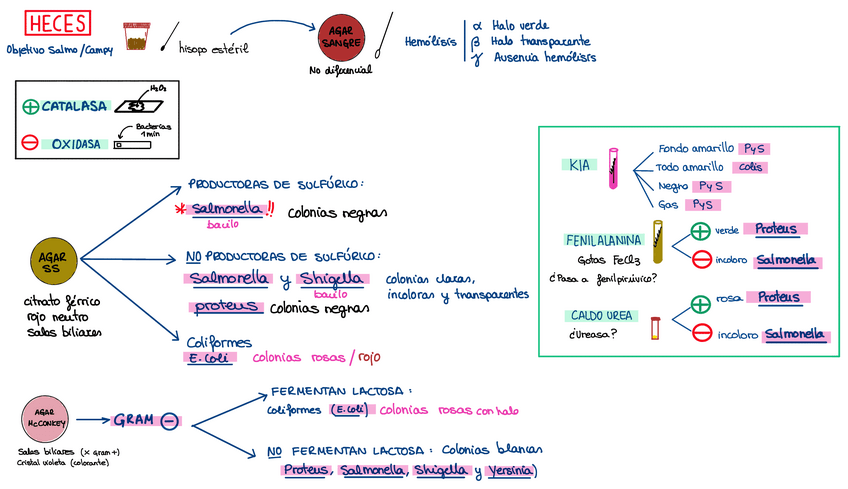 HECES
Objetivo Salmo/Campy
hisopo estéril
AGAR SANGRE
No diferencial
Hemólisis
α Halo verde
β Halo transparente
γ Ausencia hemólisis
+ CATALASA
H₂O₂
- OXIDASA
Bacterias 1 min
AGAR SS
citrato férrico
rojo neutro
Sales biliares
PRODUCTORAS DE SULFÚRICO:
* Salmonella !! colonias negras
bacilo
NO PRODUCTORAS DE SULFÚRICO:
Salmonella y Shigella colonias claras,
bacilo
incoloras y transparentes
proteus colonias negras
Coliformes
E. Coli colonias rosas / rojo
KIA
Fondo amarillo PyS
Todo amarillo colis
Negro PyS
Gas PyS
FENILALANINA
Gotas FeCl₃
¿Pasa a fenilpirúvico?
+ verde Proteus
- incoloro Salmonella
CALDO UREA
¿Ureasa?
+ rosa Proteus
- incoloro Salmonella
AGAR McCONKEY
Sales biliares (x Gram +)
Cristal violeta (colorante)
GRAM -
FERMENTAN LACTOSA:
Coliformes (E. coli) colonias rosas con halo
NO FERMENTAN LACTOSA: Colonias blancas
Proteus, Salmonella, Shigella y Yersinia)